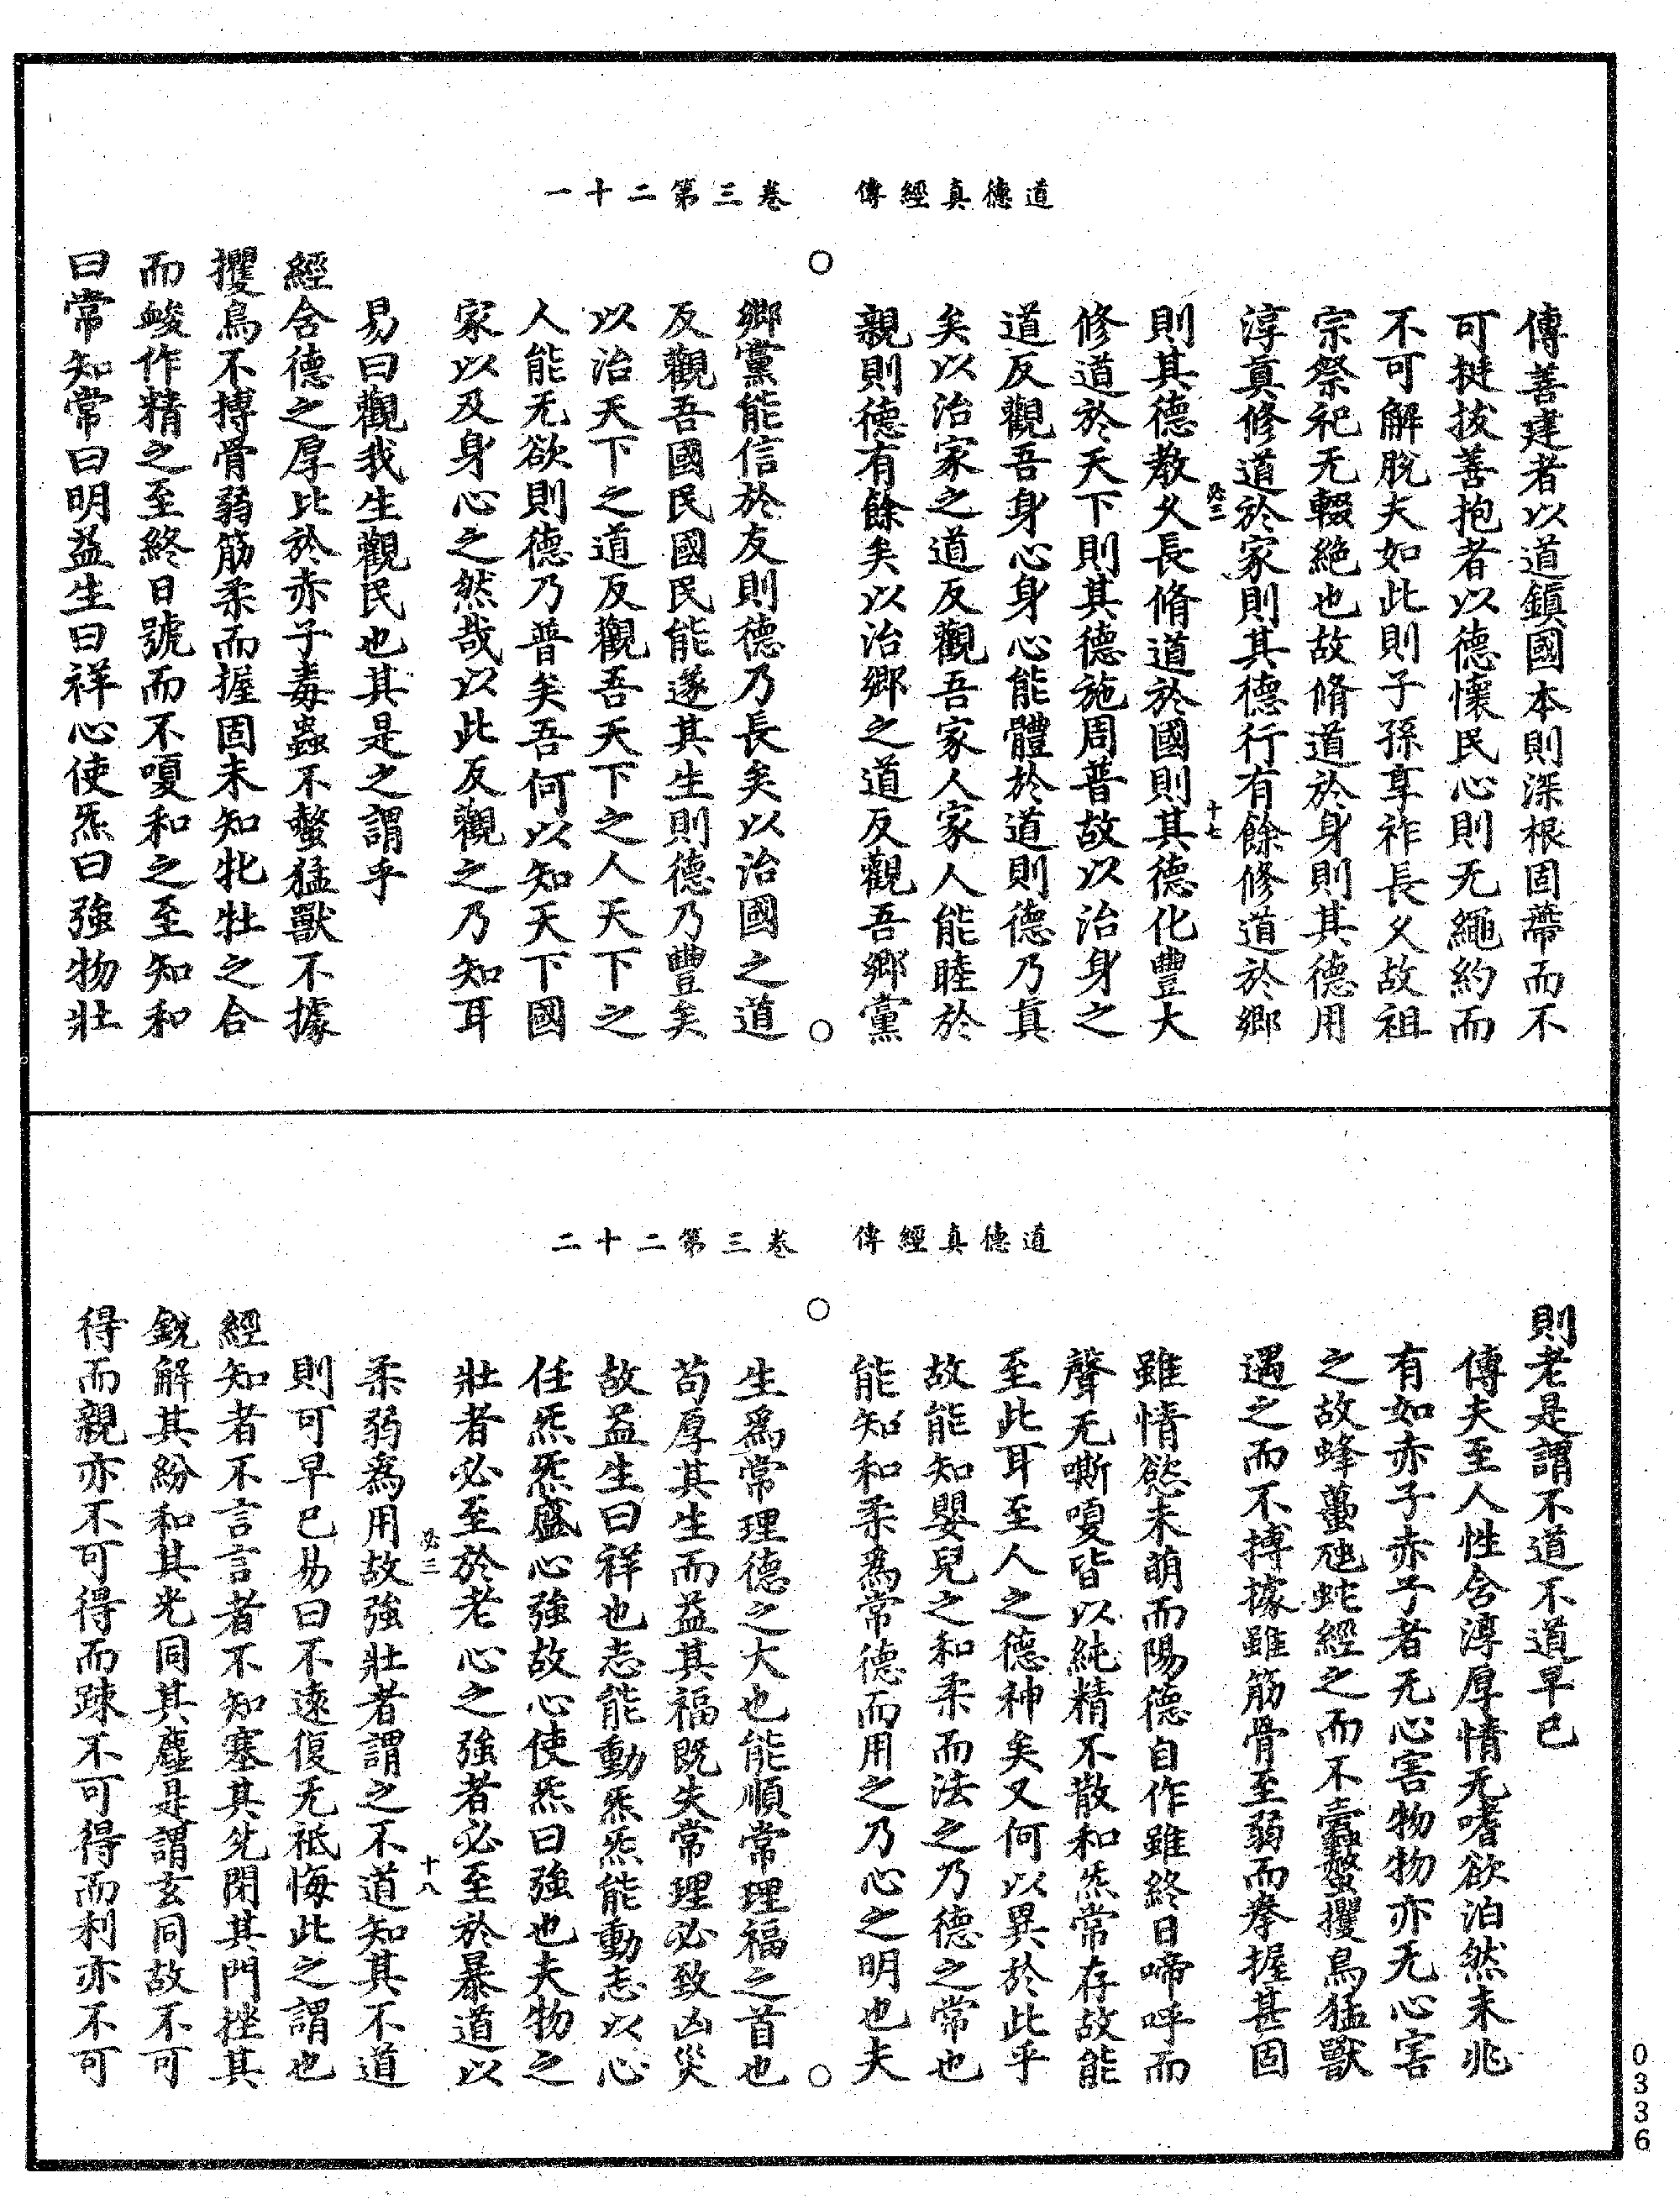 道德真經傳　卷三第二十一
傳善建者以道鎮國本則深根固蔕而不
可挻拔善抱者以德懷民心則无繩約而
不可解脫夫如此則子孫享祚長久故祖
宗祭祀无輟絕也故脩道於身則其德用
淳真修道於家則其德行有餘修道於鄉
必三　十七
則其德教久長脩道於國則其德化豐大
修道於天下則其德施周普故以治身之
道反觀吾身心身心能體於道則德乃真
矣以治家之道反觀吾家人家人能睦於
親則德有餘矣以治鄉之道反觀吾鄉黨
鄉黨能信於友則德乃長矣以治國之道
反觀吾國民國民能遂其生則德乃豐矣
以治天下之道反觀吾天下之人天下之
人能无欲則德乃普矣吾何以知天下國
家以及身心之然哉以此反觀之乃知耳
易曰觀我生觀民也其是之謂乎
經含德之厚比於赤子毒蟲不螫猛獸不據
攫鳥不搏骨弱筋柔而握固未知牝牡之合
而䘒作精之至終日號而不嗄和之至知和
曰常知常曰明益生曰祥心使炁曰強物壯
道德真經傳　卷三第二十二
則老是謂不道不道早已
傳夫至人性含淳厚情无嗜欲泊然未兆
有如赤子赤子者无心害物物亦无心害
之故蜂蠆虺蛇經之而不蠹螫攫鳥猛獸
遇之而不搏據雖筋骨至弱而拳握甚固
雖情慾未萌而陽德自作雖終日啼呼而
聲无嘶嗄皆以純精不散和炁常存故能
至此耳至人之德神矣又何以異於此乎
故能知嬰兒之和柔而法之乃德之常也
能知和柔為常德而用之乃心之明也夫
生為常理德之大也能順常理福之首也
苟厚其生而益其福既失常理必致凶災
故益生曰祥也志能動炁炁能動志以心
任炁炁盛心強故心使炁曰強也夫物之
壯者必至於老心之強者必至於暴道以
必三　十八
柔弱為用故強壯者謂之不道知其不道
則可早已易曰不遠復无袛悔此之謂也
經知者不言言者不知塞其兊閉其門挫其
銳解其紛和其光同其塵是謂玄同故不可
得而親亦不可得而踈不可得而利亦不可
0336